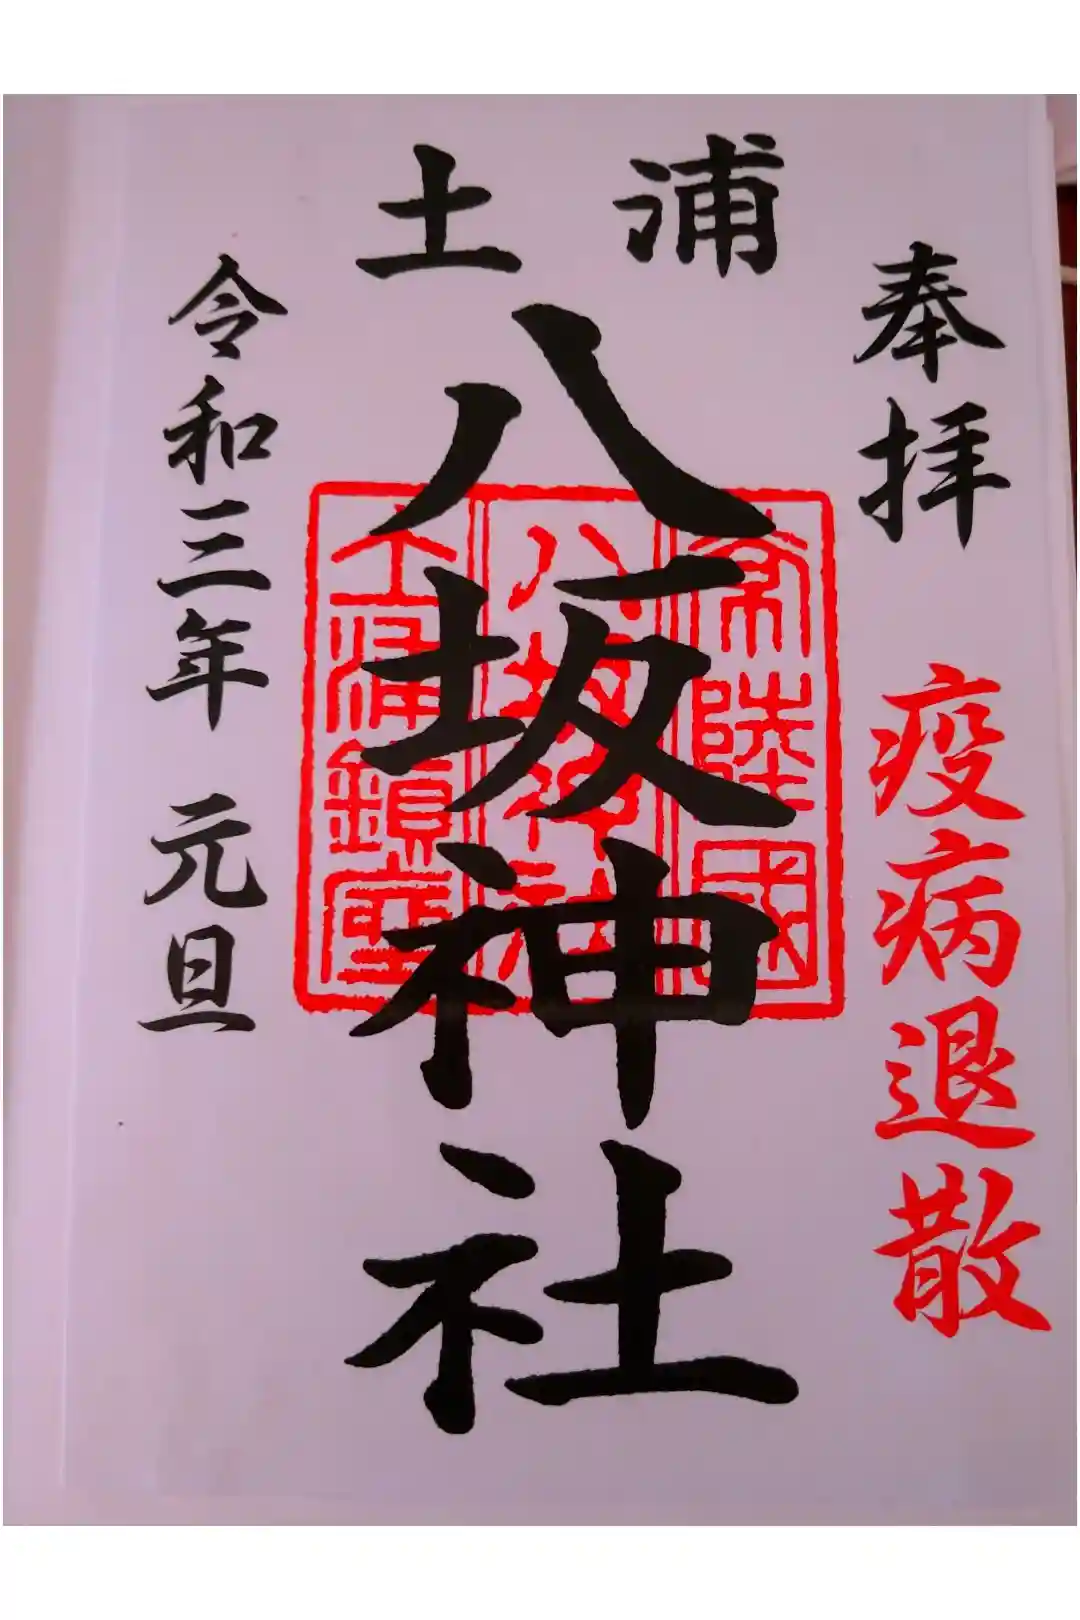 奉拝
疫病退散
土浦
八坂神社
常陸國
八坂神社
土浦鎮座
令和三年 元旦